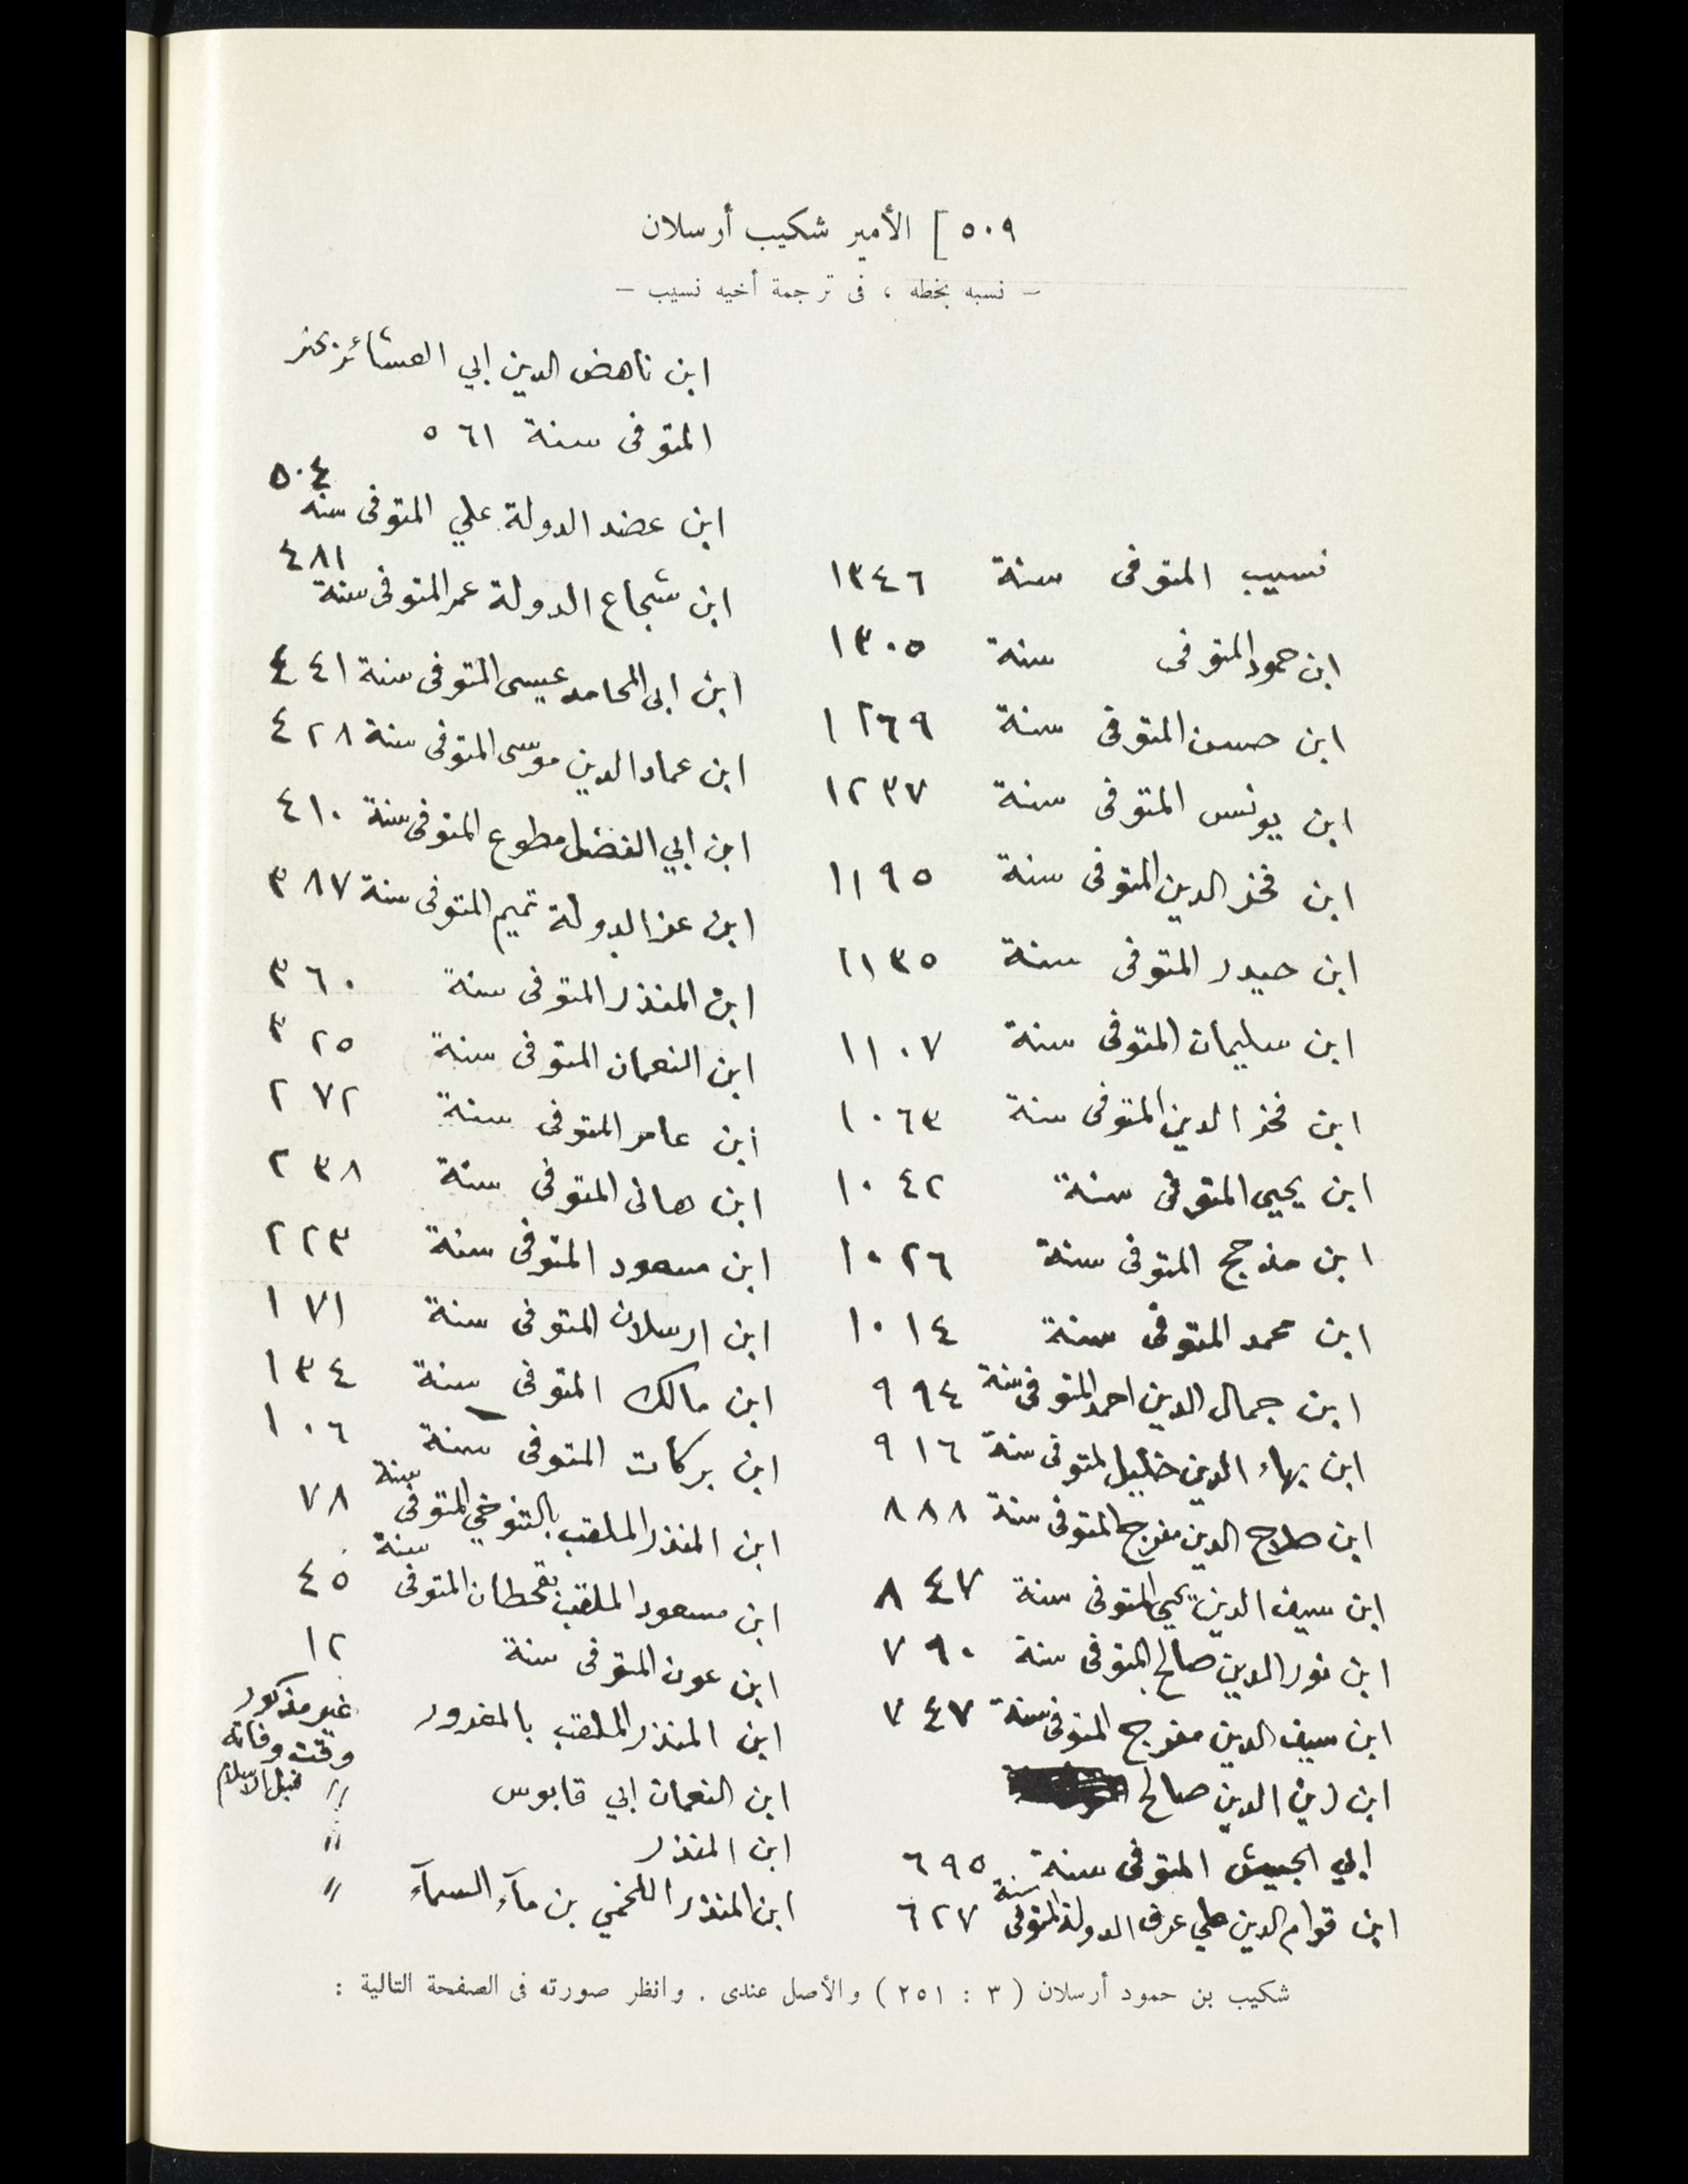 ٥٠٩ ] الأمير شكيب أرسلان
— نسبه بخطه ، فى ترجمة أخيه نسيب —
نسيب المتوفى سنة ١٣٤٦
ابن حمود المتوفى سنة ١٣٠٥
ابن حسن المتوفى سنة ١٢٦٩
ابن يونس المتوفى سنة ١٢٣٧
ابن فخر الدين المتوفى سنة ١١٩٥
ابن حيدر المتوفى سنة ١١٣٥
ابن سليمان المتوفى سنة ١١٠٧
ابن فخر الدين المتوفى سنة ١٠٦٣
ابن يحيى المتوفى سنة ١٠٤٢
ابن مذحج المتوفى سنة ١٠٢٦
ابن محمد المتوفى سنة ١٠١٤
ابن جمال الدين احمد المتوفى سنة ٩٩٤
ابن بهاء الدين خليل المتوفى سنة ٩١٦
ابن صلاح الدين مفرج المتوفى سنة ٨٨٨
ابن سيف الدين يحيى المتوفى سنة ٨٤٧
ابن نور الدين صالح المتوفى سنة ٧٩٠
ابن سيف الدين مفرج المتوفى سنة ٧٤٧
ابن زين الدين صالح
ابي الجيش المتوفى سنة ٦٩٥
ابن قوام الدين علي عرف الدولة المتوفى سنة ٦٢٧
ابن ناهض الدين ابي العشائر بحتر
المتوفى سنة ٥٦١
ابن عضد الدولة علي المتوفى سنة ٥٠٤
ابن شجاع الدولة عمر المتوفى سنة ٤٨١
ابن ابى المحامد عيسى المتوفى سنة ٤٤١
ابن عماد الدين موسى المتوفى سنة ٤٢٨
ابن ابي الفضل مطوع المتوفى سنة ٤١٠
ابن عز الدولة تميم المتوفى سنة ٣٨٧
ابن المنذر المتوفى سنة ٣٦٠
ابن النعمان المتوفى سنة ٣٢٥
ابن عامر المتوفى سنة ٢٧٢
ابن هانى المتوفى سنة ٢٣٨
ابن مسعود المتوفى سنة ٢٢٣
ابن ارسلان المتوفى سنة ١٧١
ابن مالك المتوفى سنة ١٣٤
ابن بركات المتوفى سنة ١٠٦
ابن المنذر الملقب بالتنوخي المتوفى سنة ٧٨
ابن مسعود الملقب بقحطان المتوفى سنة ٤٥
ابن عون المتوفى سنة ١٢
ابن المنذر الملقب بالمغرور غير مذكور
وقت وفاته
ابن النعمان ابي قابوس " قبل الاسلام
ابن المنذر "
ابن المنذر اللخمي بن مآء السمآء "
شكيب بن حمود أرسلان ( ٣ : ٢٥١ ) والأصل عندى . وانظر صورته فى الصفحة التالية :